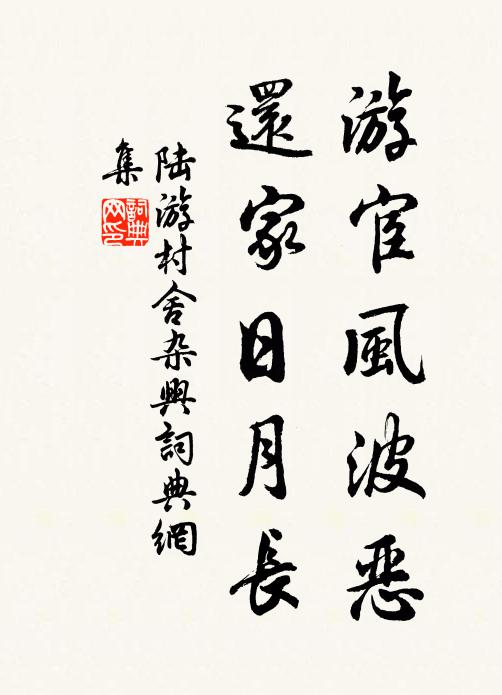 游宦風波惡
還家日月長
陆游村舍杂興詞典網
集
詞典網印